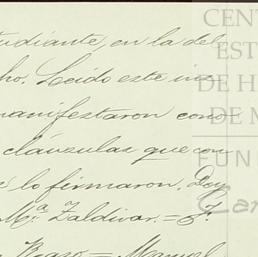 tudiante, en la del
ho. Leido este ins
manifestaron con
cláusulas que con
lo firmaron. Doy
Mª Zaldivar. = J.
= Manuel
CENT
EST
DE H
DE M
FUN
Car